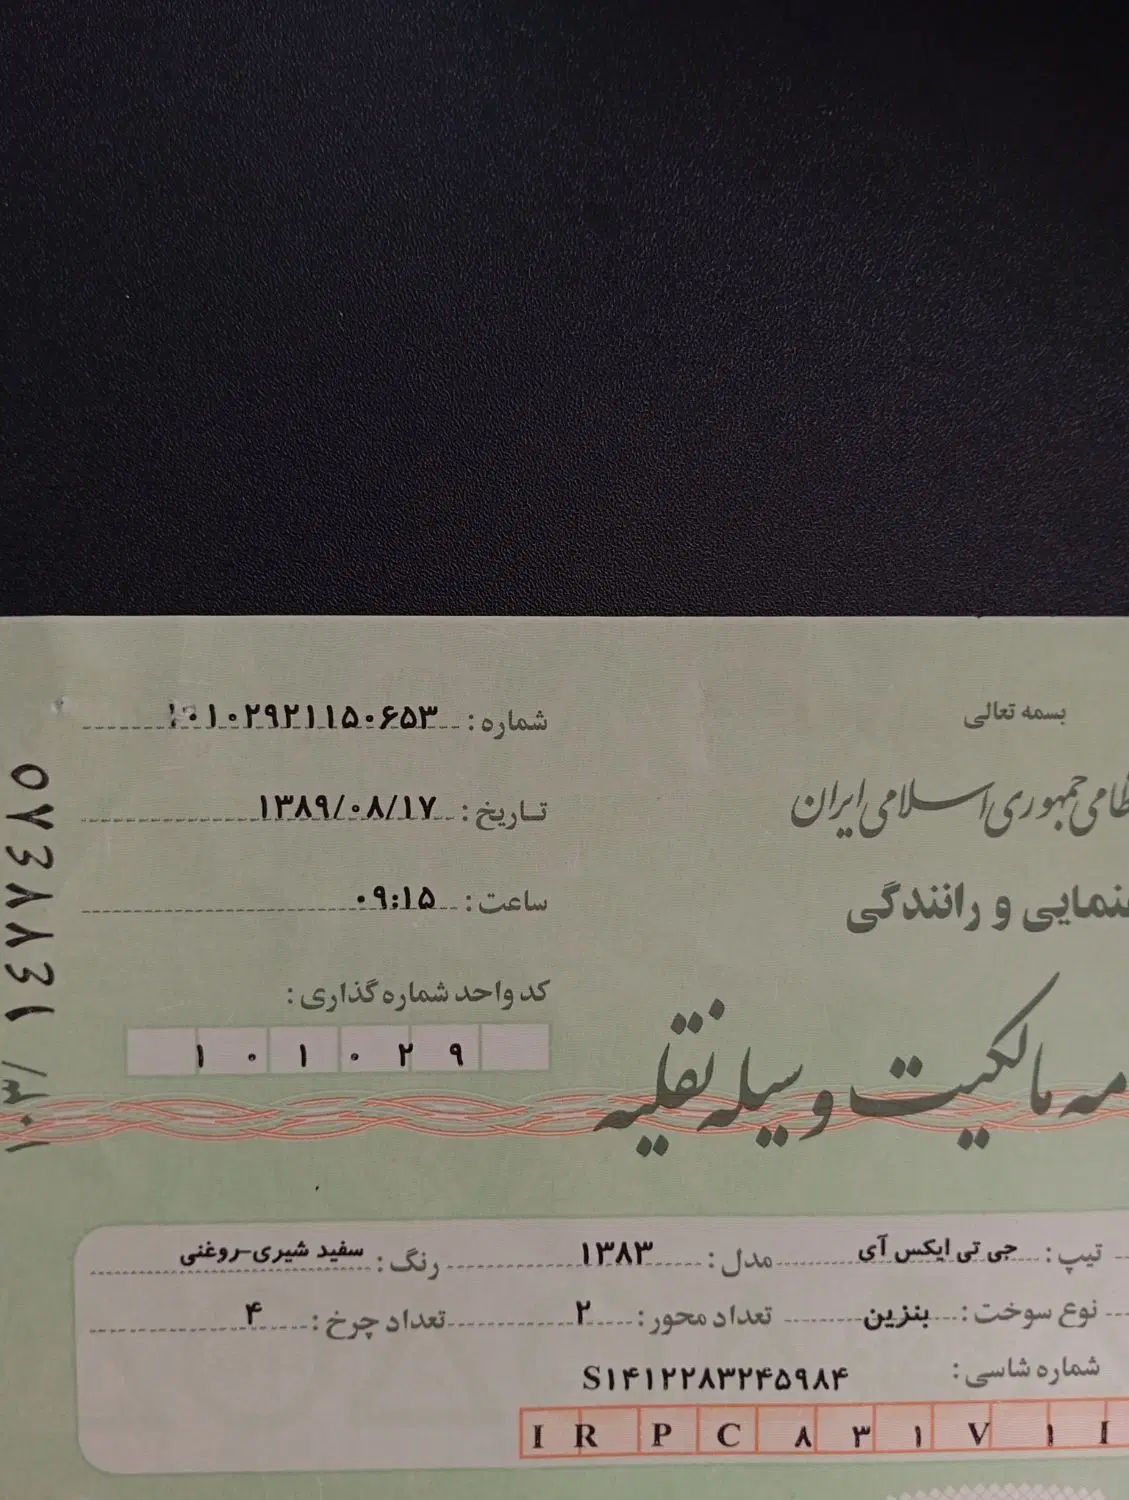 بسمه تعالی
جمهوری اسلامی ایران
و رانندگی
مالکیت وسیله نقلیه
شماره: ۱۰۱۰۲۹۲۱۱۵۰۶۵۳
تاریخ: ۱۳۸۹/۰۸/۱۷
ساعت: ۰۹:۱۵
کد واحد شماره گذاری:
۱ ۰ ۱ ۰ ۲ ۹
۱۰۳/ ۱۴۸۸۴۸۵
تیپ: جی تی ایکس آی مدل: ۱۳۸۳ رنگ: سفید شیری-روغنی
نوع سوخت: بنزین تعداد محور: ۲ تعداد چرخ: ۴
شماره شاسی: S۱۴۱۲۲۸۳۲۴۵۹۸۴
I R P C ۸ ۳ ۱ V ۱ I